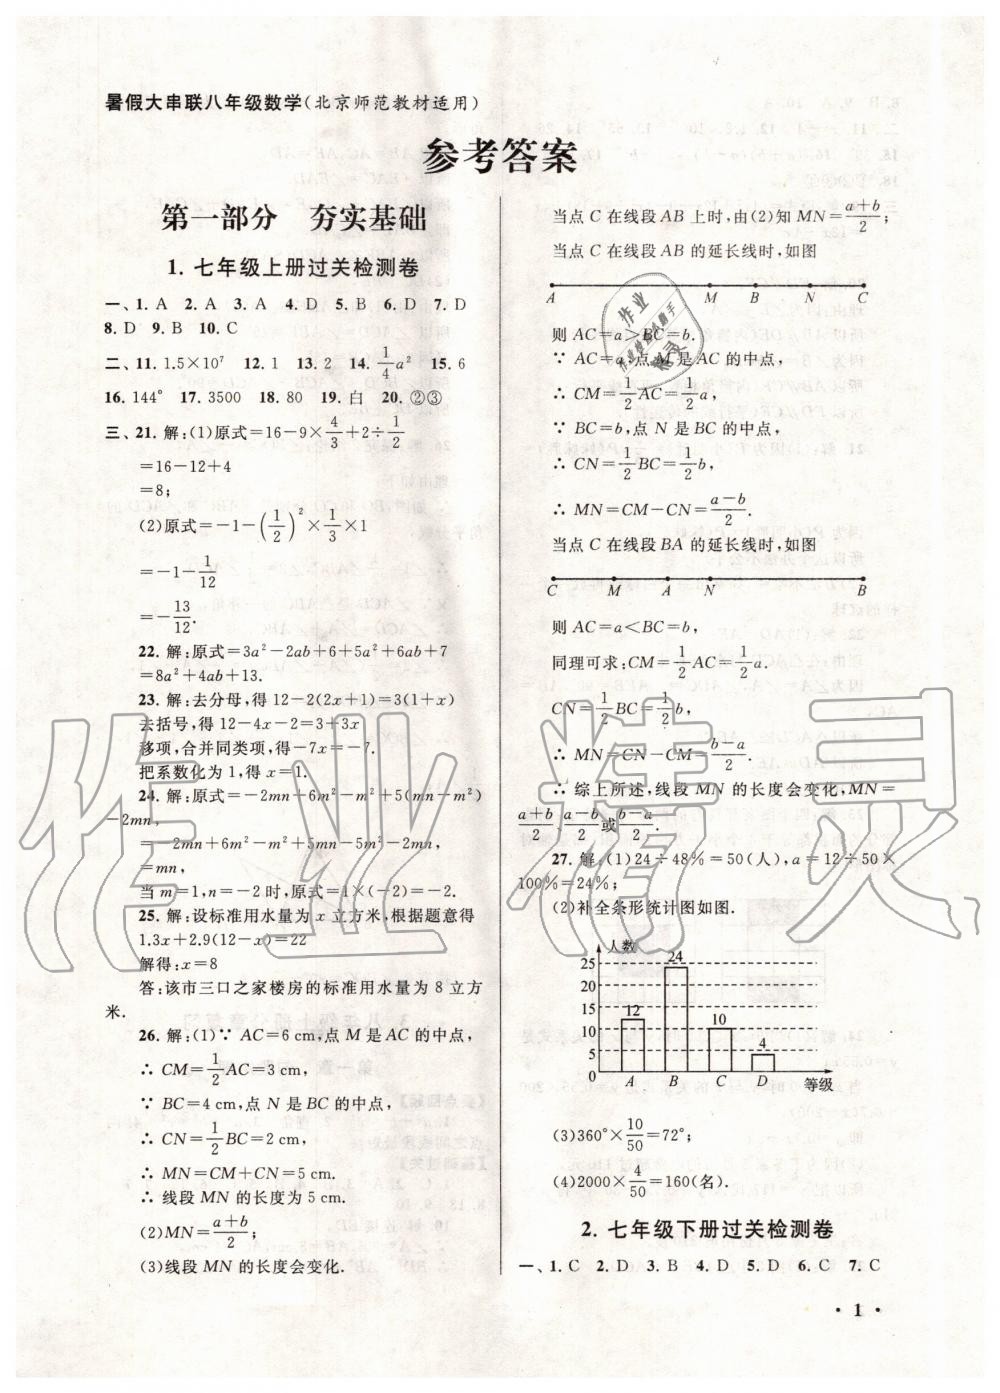 暑假大串联八年级数学(北京师范教材适用)
参考答案
第一部分　夯实基础
1. 七年级上册过关检测卷
一、1. A　2. A　3. A　4. D　5. B　6. D　7. D
8. D　9. B　10. C
二、11. 1.5×10⁷　12. 1　13. 2　14. 1/4 a²　15. 6
16. 144°　17. 3500　18. 80　19. 白　20. ②③
三、21. 解:(1)原式=16-9×4/3+2÷1/2
=16-12+4
=8;
(2)原式=-1-(1/2)²×1/3×1
=-1-1/12
=-13/12.
22. 解:原式=3a²-2ab+6+5a²+6ab+7
=8a²+4ab+13.
23. 解:去分母,得12-2(2x+1)=3(1+x)
去括号,得12-4x-2=3+3x
移项,合并同类项,得-7x=-7.
把系数化为1,得x=1.
24. 解:原式=-2mn+6m²-m²+5(mn-m²)
-2mn,
=-2mn+6m²-m²+5mn-5m²-2mn,
=mn,
当m=1,n=-2时,原式=1×(-2)=-2.
25. 解:设标准用水量为x立方米,根据题意得
1.3x+2.9(12-x)=22
解得:x=8
答:该市三口之家楼房的标准用水量为8立方
米.
26. 解:(1)∵ AC=6 cm,点M是AC的中点,
∴ CM=1/2AC=3 cm,
∵ BC=4 cm,点N是BC的中点,
∴ CN=1/2BC=2 cm,
∴ MN=CM+CN=5 cm,
∴ 线段MN的长度为5 cm.
(2)MN=(a+b)/2;
(3)线段MN的长度会变化.
当点C在线段AB上时,由(2)知MN=(a+b)/2;
当点C在线段AB的延长线时,如图
A　M　B　N　C
则AC=a>BC=b.
∵ AC=a,点M是AC的中点,
∴ CM=1/2AC=1/2a,
∵ BC=b,点N是BC的中点,
∴ CN=1/2BC=1/2b,
∴ MN=CM-CN=(a-b)/2.
当点C在线段BA的延长线时,如图
C　M　A　N　B
则AC=a<BC=b,
同理可求:CM=1/2AC=1/2a.
CN=1/2BC=1/2b,
∴ MN=CN-CM=(b-a)/2.
∴ 综上所述,线段MN的长度会变化,MN=
(a+b)/2,(a-b)/2或(b-a)/2.
27. 解:(1)24÷48%=50(人),a=12÷50×
100%=24%;
(2)补全条形统计图如图.
人数
25
20
15
10
5
0
12
24
10
4
A　B　C　D　等级
(3)360°×10/50=72°;
(4)2000×4/50=160(名).
2. 七年级下册过关检测卷
一、1. C　2. D　3. B　4. D　5. D　6. C　7. C
· 1 ·
作业精灵